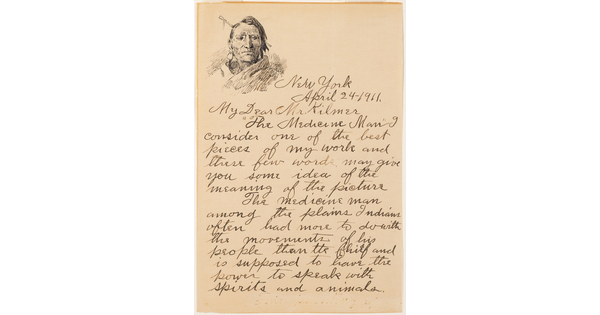 New York
April 24-1911.
My Dear Mr Kilmer
The Medicine Man I
consider one of the best
pieces of my work and
these few words may give
you some idea of the
meaning of the picture
The medicine man
among the plains Indians
often had more to do with
the movements of his
people than the chief and
is supposed to have the
power to speak with
spirits and animals.